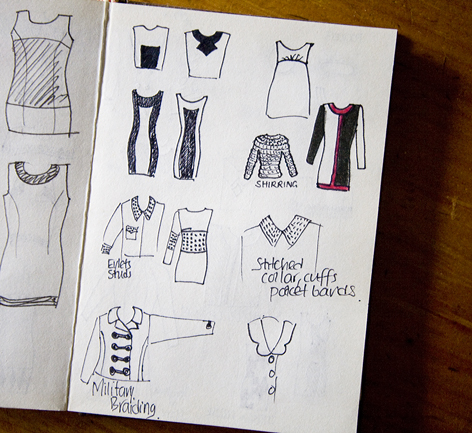 SHIRRING
Eylets
Studs
Stitched
collar, cuffs
pocket bands.
Military
Braiding.